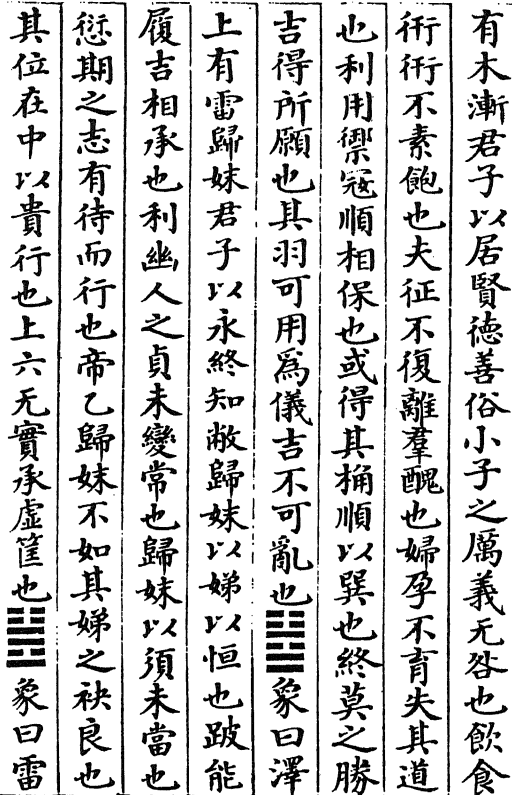 有木漸君子以居賢徳善俗小子之厲義无咎也飲食
衎衎不素飽也夫征不復離羣醜也婦孕不育失其道
也利用禦冦順相保也或得其桷順以巽也終莫之勝
吉得所願也其羽可用爲儀吉不可亂也䷵象曰澤
上有雷歸妹君子以永終知敝歸妹以娣以恒也跛能
履吉相承也利幽人之貞未變常也歸妹以須未當也
愆期之志有待而行也帝乙歸妹不如其娣之袂良也
其位在中以貴行也上六无實承虛筐也䷶象曰雷